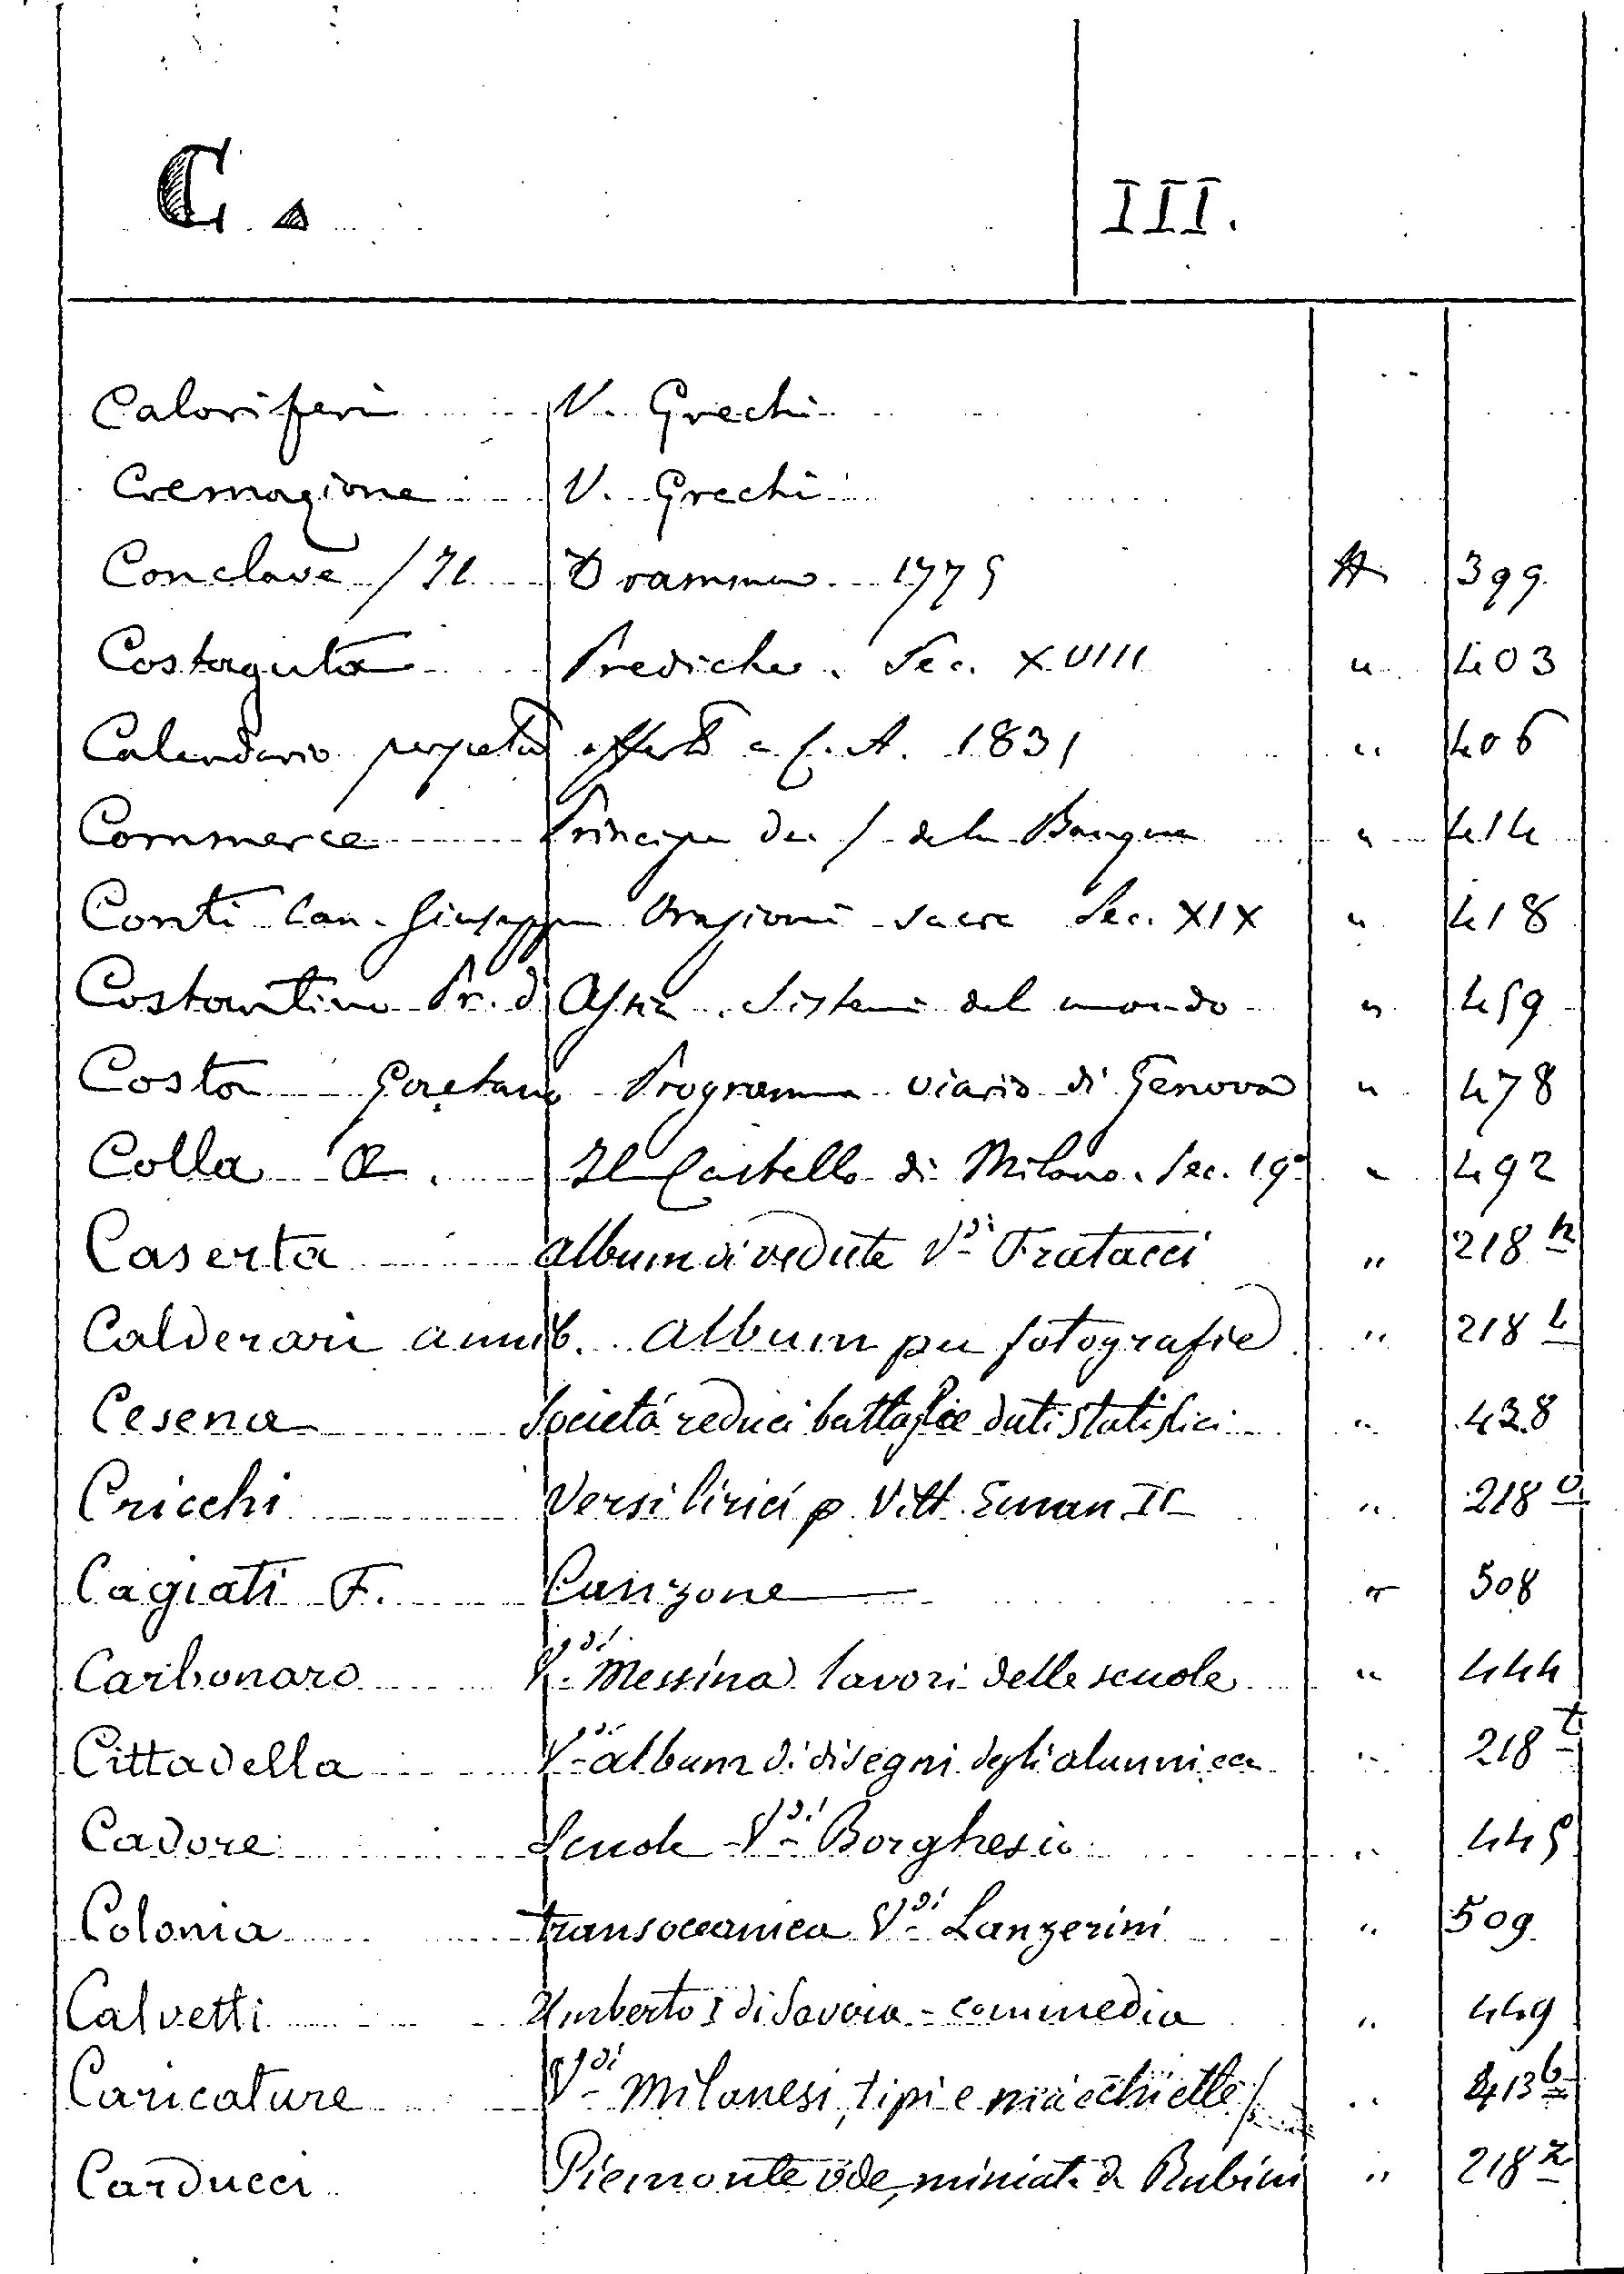 C.
III.
Caloriferi V. Grechi
Cremazione V. Grechi
Conclave / Il Dramma 1775 399
Costaguta Prediche. Sec. XVIII " 403
Calendario perpetuo offerto a C. A. 1831 " 406
Commerce Principe du / de la Banque " 414
Conti Can. Giuseppe Orazioni sacre Sec. XIX " 418
Costantino Pr. d' Assia. Sistemi del mondo " 459
Costa Gaetano Programma viario di Genova " 478
Colla A. Il Castello di Milano. Sec. 19º " 492
Caserta album di vedute Vdi Fratacci " 218 n
Calderari annib. album per fotografie " 218 L
Cesena Società reduci battaglie dati statistici " 428
Cricchi Versi lirici p. Vitt. Eman II " 218 o
Cagiati F. Canzone " 508
Carbonaro Vdi Messina lavori delle scuole " 444
Cittadella Vdi album di disegni degli alunni ecc " 218 t
Cadore Scuole Vdi Borghesio " 445
Colonia transoceanica Vdi Lanzerini " 509
Calvetti Umberto I di Savoia - commedia " 449
Caricature Vdi Milanesi, tipi e macchiette / " 413 b
Carducci Piemonte ode, miniat. da Rubini " 218 z